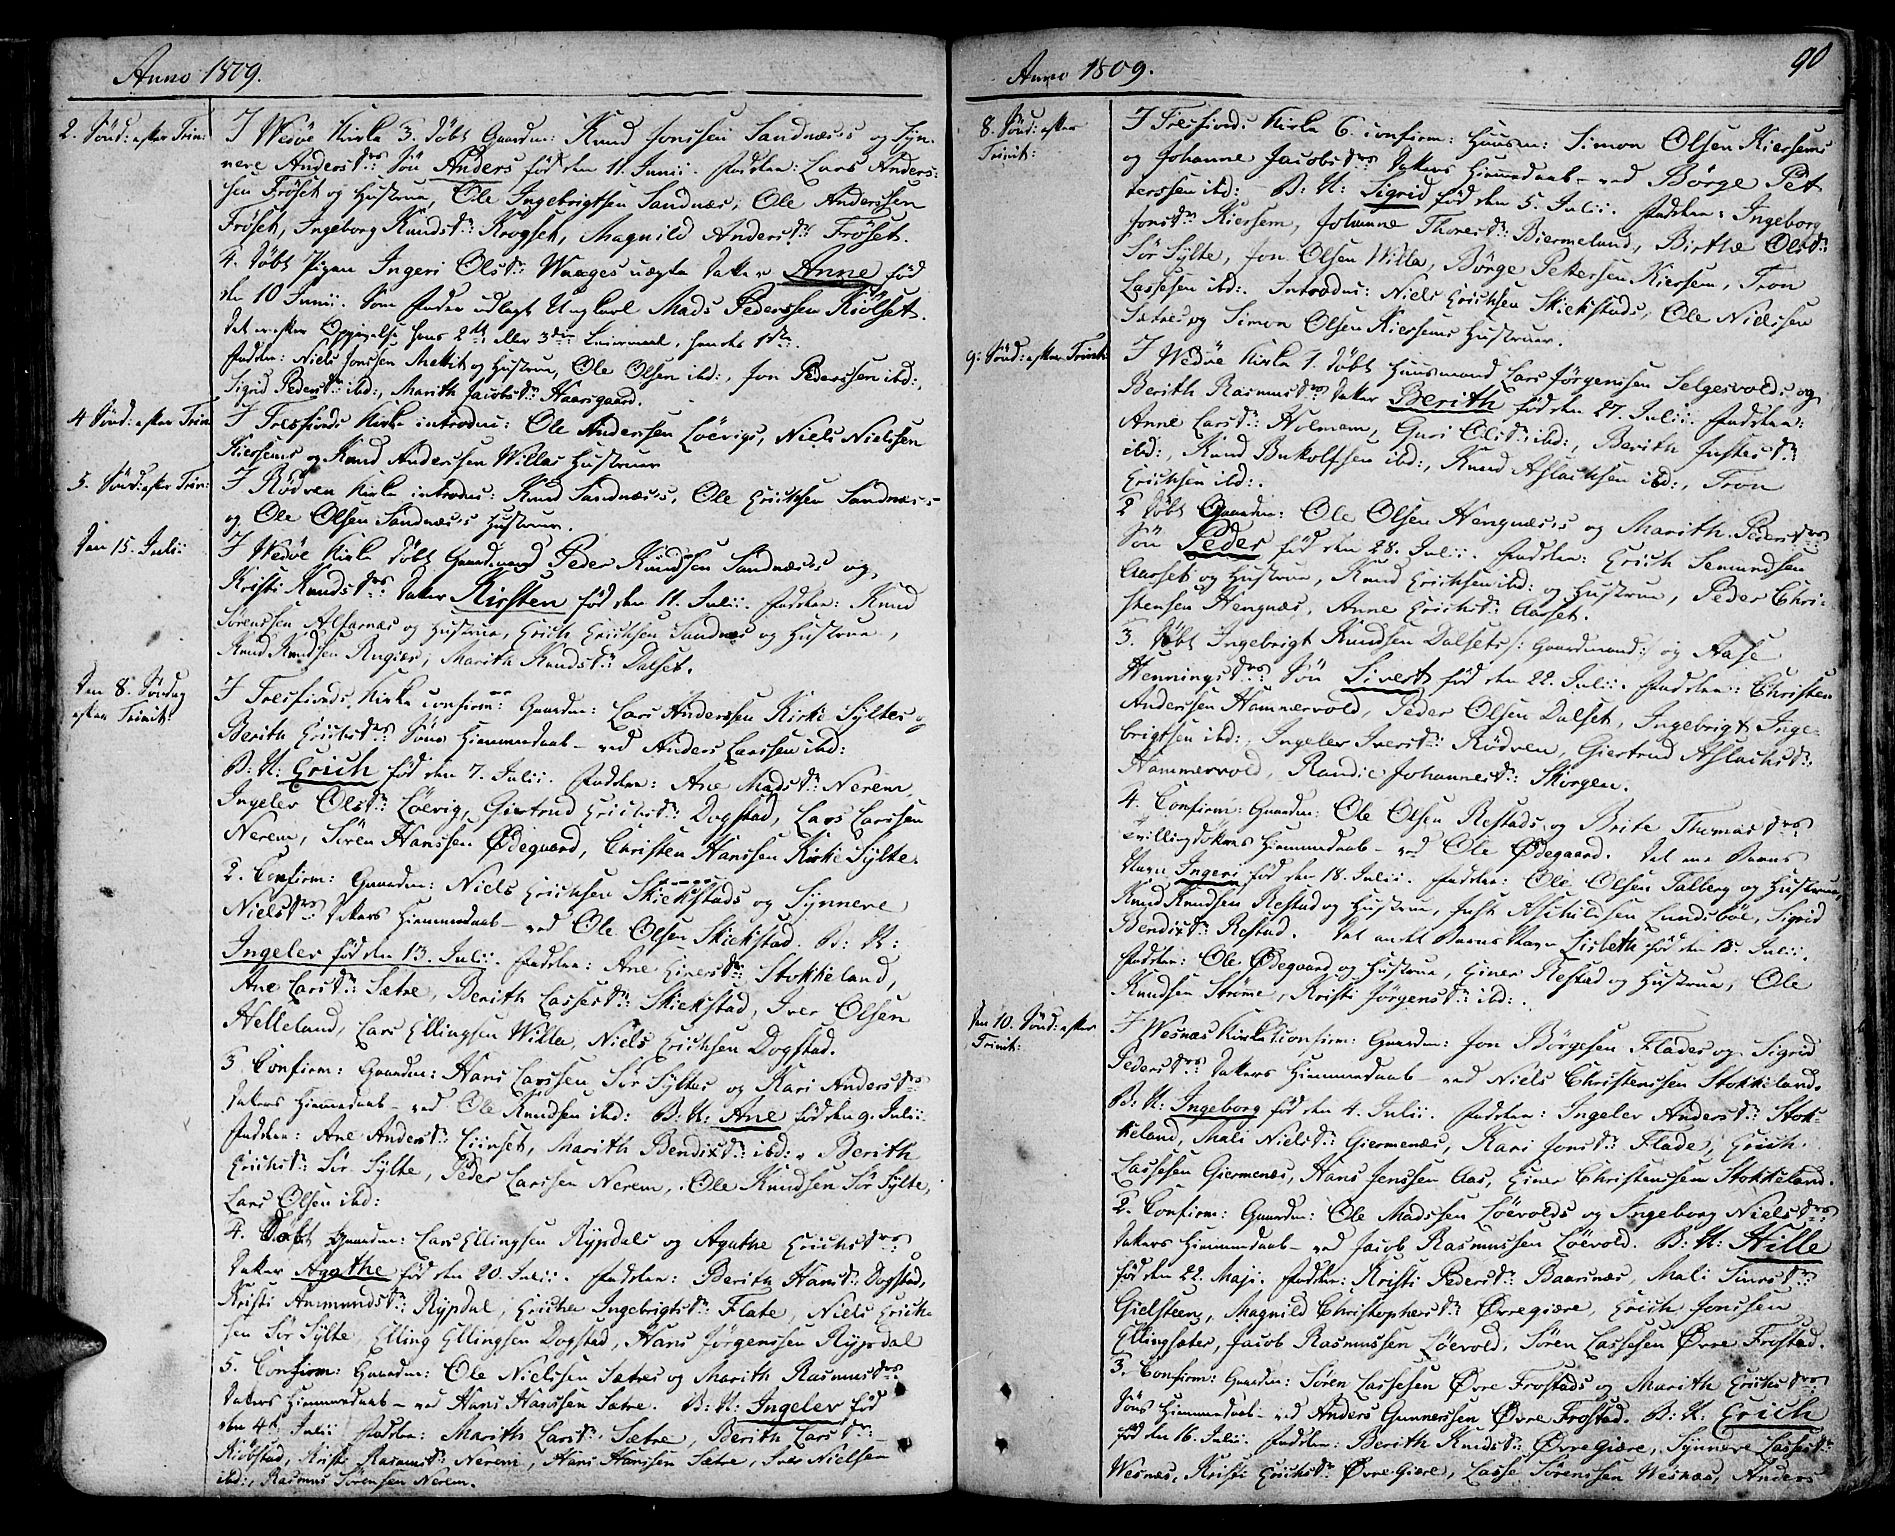 Anno 1809.
2. Sønd: efter Trin:
I Wedøe Kirke 3. døbt Gaardm: Knud Jonssen Sandnæses og Syn-
nere Andersdrs: Søn Anders fød den 11. Junii. Faddere: Lars Anders-
sen Frøset og Hustrue, Ole Ingebrigtsen Sandnæs, Ole Anderssen
Frøset, Ingeborg Knudsdr: Krogset, Magnild Andersdr: Frøset.
4. døbt Pigen Ingeri Olsdr: Waages uægte datter Anne fød
den 10 Junii. Som Fader udlagt Ungkarl Mads Pederssen Kiølset.
Det er efter Opgivelse hans 2det eller 3die Leiermaal, hendes 1ste.
Faddere: Niels Jonssen Mettet og Hustrue, Ole Olsen ibd:, Jon Pederssen ibd:,
Sigrid Pedersdr: ibd:, Marith Jacobsdr: Haarsgaard.
4 Sønd: efter Trin
I Tresfiords Kirke introdus: Ole Anderssen Løevigs, Niels Nielssen
Kiersems og Knud Anderssen Willas Hustruer
5. Sønd: efter Trin:
I Rødven Kirke introdus: Knud Sandnæses, Ole Erichsen Sandnæses
og Ole Olsen Sandnæses Hustruer.
Den 15. Julii
I Wedøe Kirke døbt Gaardmand Peder Knudsen Sandnæses og
Kristi Knudsdrs: datter Kirsten fød den 11. Julii. Faddere: Knud
Sørenssen Alfarnæs og Hustrue, Erich Erichsen Sandnæs og Hustrue,
Knud Knudsen Rugiær, Marith Knudsdr: Dalset.
Den 8. Søndag
efter Trinit:
I Tresfiords Kirke confirm: Gaardm: Lars Anderssen Kirke Syltes og
Berith Erichsdrs: Søns Hiemmedaab ved Anders Larssen ibd:
B: N: Erich fød den 7. Julii. Faddere: Ane Madsdr: Nerem,
Ingelev Olsdr: Løevig, Giertrud Erichsdr: Dogstad, Lars Larssen
Nerem, Søren Hanssen Ødegaard, Christen Hanssen Kirke Sylte.
2. Confirm: Gaardm: Niels Erichsen Skiekstads og Synnere
Nielsdrs: datters Hiemmedaab ved Ole Olsen Skiekstad. B: N:
Ingelev fød den 13. Julii. Faddere: Ane Einersdr: Stokkeland,
Ane Larsdr: Sætre, Berith Lassesdr: Skiekstad, Iver Olsen
Helleland, Lars Ellingsen Willa, Niels Erichsen Dogstad.
3 Confirm: Gaardm: Hans Larssen Sør Syltes og Kari Andersdrs
datters Hiemmedaab ved Ole Knudsen ibd: B: N: Ane fød den 9. Julii.
Faddere: Ane Andersdr: Liinset, Marith Bendixdr: ibd:, Berith
Erichsdr: Sør-Sylte, Peder Larssen Nerem, Ole Knudsen Sør Sylte,
Lars Olsen ibd:
4. Døbt Gaardm: Lars Ellingsen Rypdals og Agathe Erichsdrs
datter Agathe fød den 20. Julii. Faddere: Berith Hansdr: Dogstad,
Kristi Ammundsdr: Rypdal, Ingebrigtsdr: Flate, Niels Erich-
sen Sør Sylte, Elling Ellingsen Dogstad, Hans Jørgenssen Rypdal
5. Confirm: Gaardm: Ole Nielssen Sætres og Marith Rasmusdrs
datters Hiemmedaab ved Hans Hanssen Sætre. B: N: Ingelev fød
den 4de Julii Faddere: Marith Larsdr: Sætre, Berith Larsdr:
Kiobstad, Kristi Rasmusdr: Nerem, Hans Hanssen Sætre, Iver Nielsen
ibd:, Rasmus Sørensen Nerem.
Anno 1809.
90
8. Sønd: efter
Trinit:
I Tresfiords Kirke 6. confirm: Huusm: Simon Olsen Kiersems
og Johanne Jacobsdrs datters Hiemmedaab ved Børge Pet
terssen ibd: B: N: Sigrid fød den 5. Julii. Faddere: Ingeborg
Jonsdr: Kiersem, Johanne Thoresdr: Biermeland, Birthe Olsdr:
Sør Sylte, Jon Olsen Willa, Børge Pettersen Kiersem, Tron
Lassesen ibd:. Introdus: Niels Erichsen Skiekstads, Ole Nielssen
Sætres og Simon Olsen Kiersems Hustruer.
9. Sønd: efter Trinit:
I Wedøe Kirke 1. døbt Huusmand Lars Jørgenssen Selgesvolds og
Berith Rasmusdrs datter Berith fød den 27. Julii. Faddere:
Anne Larsdr: Holmem, Guri Olsdr: ibd:, Berith Justesdr:
ibd:, Knud Bukolfsen ibd:, Knud Aslachsen ibd:, Tron
Erichsen ibd:.
2 døbt Gaardm: Ole Olsen Hengnæses og Marith Pedersdrs
Søn Peder fød den 28. Julii. Faddere: Erich Semundsen
Aarset og Hustrue, Knud Erichsen ibd: og Hustrue, Peder Chri-
stensen Hengnæs, Anne Erichsdr: Aarset.
3. døbt Ingebrigt Knudsen Dalsets /: Gaardmand :/ og Aase
Henningsdrs Søn Sivert fød den 22. Julii. Faddere: Christen
Anderssen Hammervold, Peder Olsen Dalset, Ingebrigt Inge-
brigtsen ibd:, Ingelev Iversdr: Rødven, Giertrud Aslachsdr:
Hammervold, Randie Johannesdr: Skorgen.
4. Confirm: Gaardm: Ole Olsen Restads og Brite Thomasdrs
Tvillingdøttres Hiemmedaab ved Ole Ødegaard. Det ene Barns
Navn Ingeri fød den 18. Julii. Faddere: Ole Olsen Talberg og Hustrue,
Knud Knudsen Restad og Hustrue, Just Aschildsen Lundsbøe, Sigrid
Bendixdr: Restad. Det andet Barns Navn Lisbeth fød den 18. Julii.
Faddere: Ole Ødegaard og Hustrue, Einer Restad og Hustrue, Ole
Knudsen Strøme, Kristi Jørgensdr: ibd:.
Den 10. Sønd: efter
Trinit:
I Wesnæs Kirke 1 confirm: Gaardm: Jon Børgesen Flades og Sigrid
Pedersdrs datters Hiemmedaab ved Niels Christenssen Stokkeland.
B: N: Ingeborg fød den 4. Julii. Faddere: Ingelev Andersdr: Stok-
keland, Mali Nielsdr: Giermenæs, Kari Jonsdr: Flade, Erich
Lassesen Giermenæs, Hans Jenssen Aas, Einer Christenssen Stokkeland.
2. Confirm: Gaardm: Ole Madssen Løevolds og Ingeborg Nielsdrs
datters Hiemmedaab ved Jacob Rasmussen Løevold. B: N: Hille
fød den 22. Maji. Faddere: Kristi Pedersdr: Baarsnæs, Mali
Gielsteen, Magnild Christophersdr: Øvregiære, Erich Jonssen
Ellingsæter, Jacob Rasmussen Løevold, Søren Lassesen Øvre Frostad.
3. Confirm: Gaardm: Søren Lassesen Øvre Frostads og Marith Erichsdrs
Søns Hiemmedaab ved Anders Gunnerssen Øvre Frostad. B: N: Erich
fød den 16. Julii. Faddere: Berith Knudsdr: Øvre Giære, Synnere Lassesdr:
Wesnæs, Kristi Erichsdr: Øvre Giære, Lasse Sørenssen Wesnæs, Anders